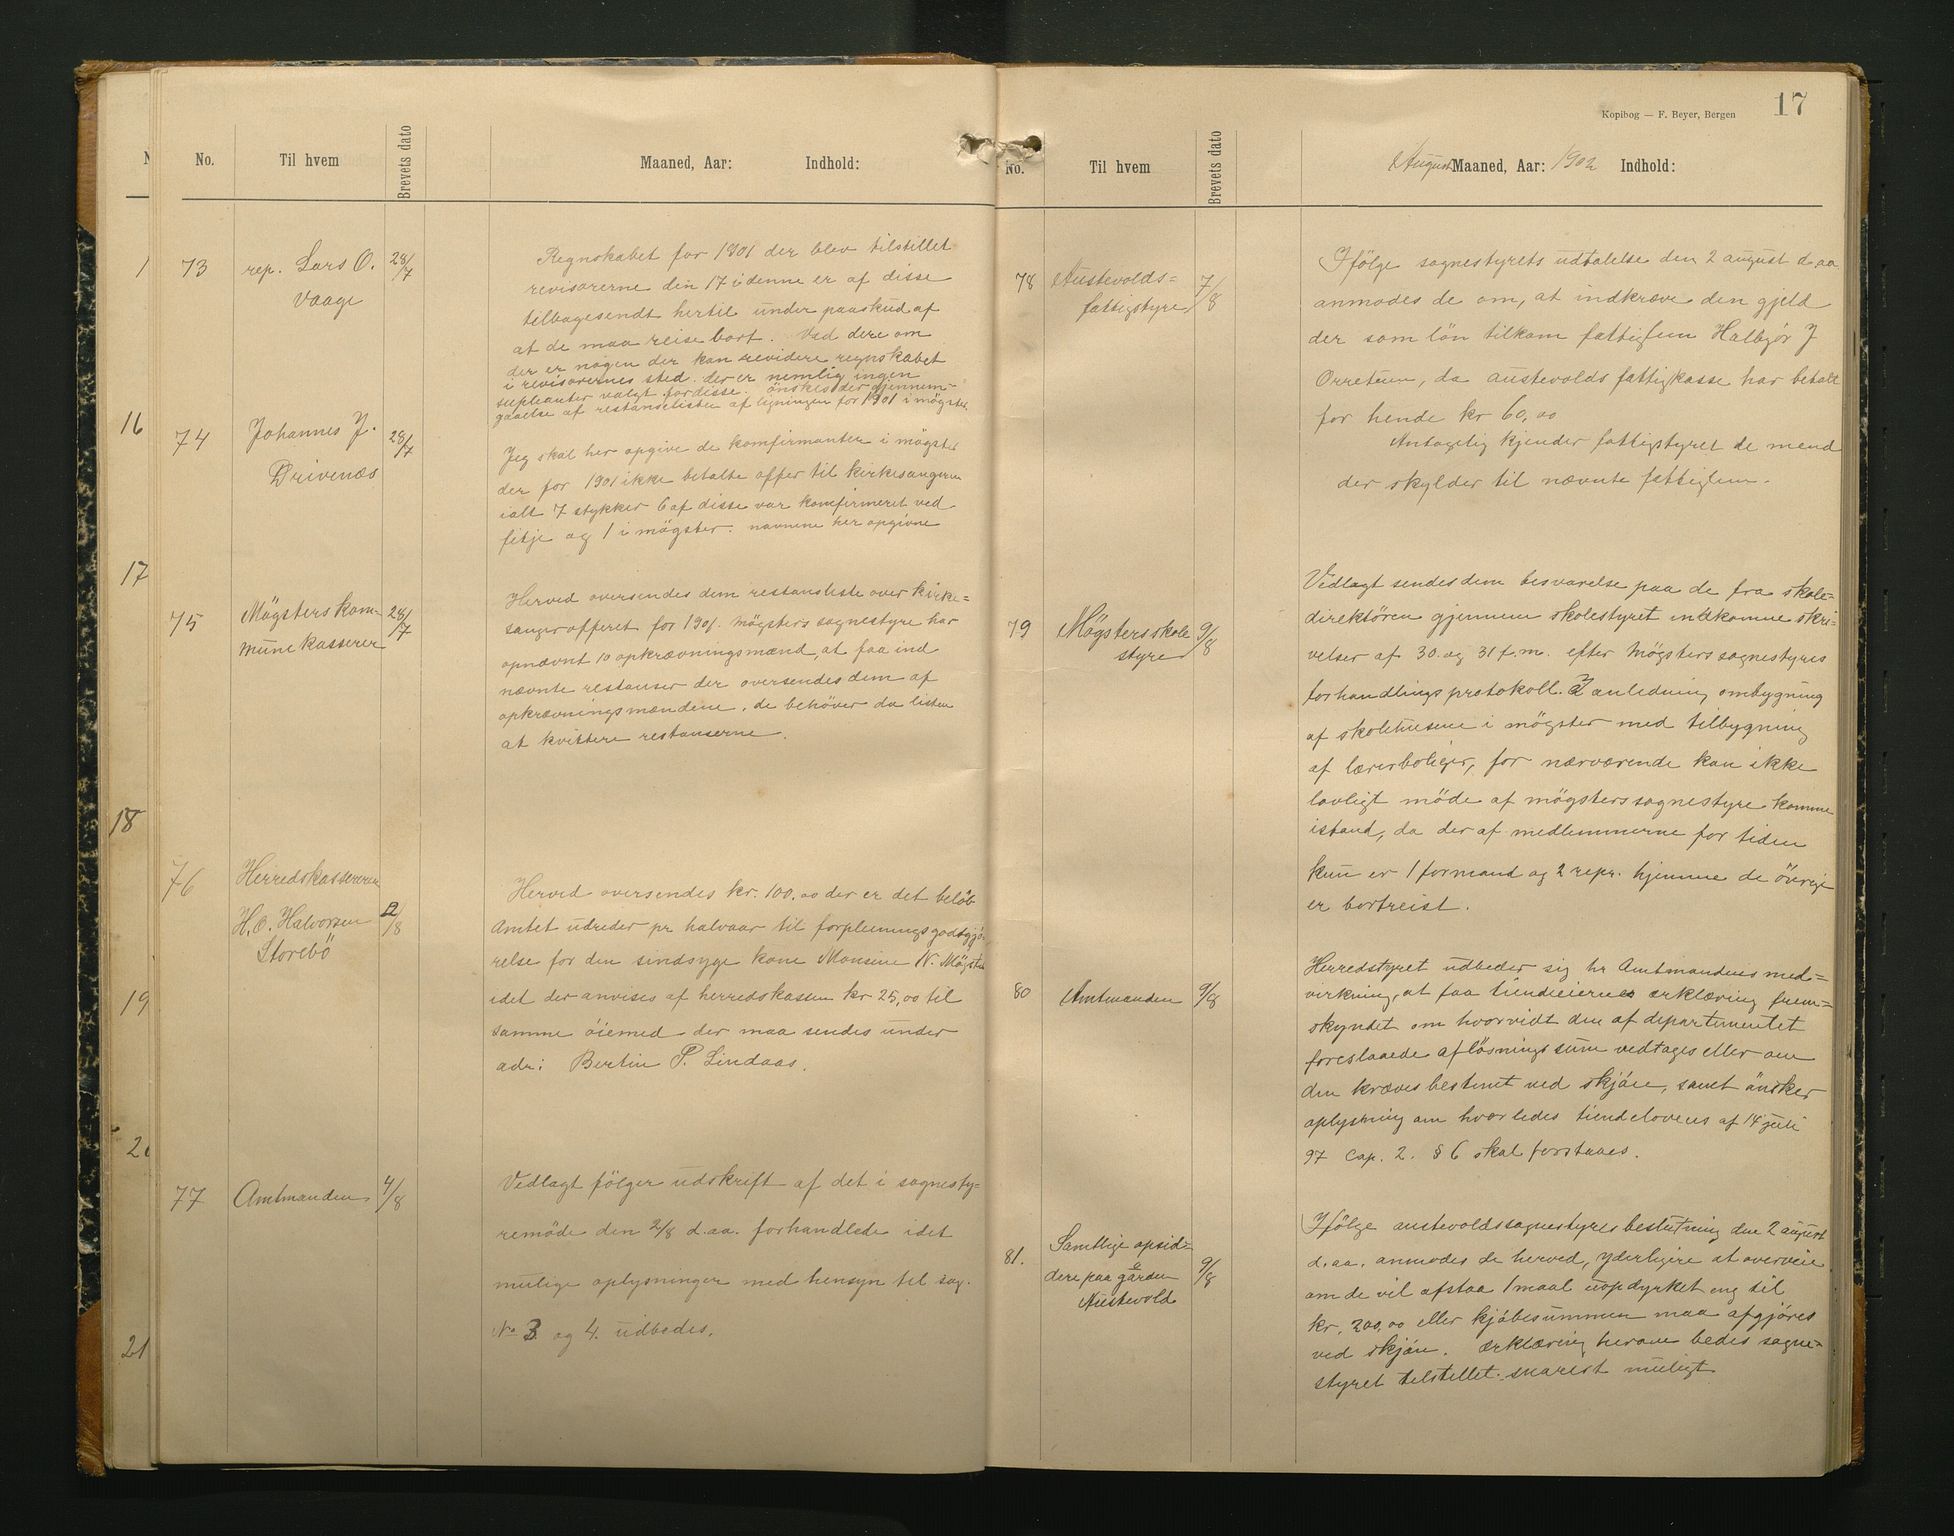 No.
Til hvem
Brevets dato
Maaned, Aar:
Indhold:
73
rep. Lars O.
Vaage
28/7
Regnskabet for 1901 der blev tilstillet
revisorerne den 17 i denne er af disse
tilbagesendt hertil under paaskud af
at de maa reise bort. Ved dere om
der er nogen der kan revidere regnskabet
i revisorernes sted. der er nemlig ingen
supleanter valgt for disse. önskes der gjennem-
gaaelse af restanselisten af ligningen for 1901 i mögster
74
Johannes J.
Drivenæs
28/7
Jeg skal her opgive de komfirmanter i mögster
der for 1901 ikke betalte offer til kirkesangeren
ialt 7 stykker 6 af disse var komfirmeret ved
fitje og 1 i mögster. navnene her opgivne
75
Mögsters kom-
mune kasserer
28/7
Herved oversendes dem restanseliste over kirke=
sangerofferet for 1901. Mögsters sognestyre har
opnævnt 10 opkrævningsmænd, at faa ind
nævnte restanser der oversendes dem af
opkrævningsmændene. de behöver du listen
at kvittere restanserne.
76
Herredskassereren
H. O. Halvorsen
Storebö
2/8
Herved oversendes kr. 100,00 der er det belöb
Amtet udreder pr halvaar til forpleiningsgodtgjö-
relse for den sindsyge kone Monsine N. Mögster
idet der anvises af herredskassen kr 25,00 til
samme öiemed der maa sendes under
adr: Bertin P. Lindaas.
77
Amtmanden
4/8
Vedlagt fölger udskrift af det i sognesty=
remöde den 2/8 d.aa. forhandlede idet
mulige oplysninger med hensyn til sag.
No 3 og 4. udbedes.
16
17
18
19
21
Kopibog — F. Beyer, Bergen
17
No.
Til hvem
Brevets dato
August Maaned, Aar: 1902 Indhold:
78
Austevolds=
fattigstyre
7/8
Ifölge sognestyrets udtalelse den 2 august d.aa
anmodes de om, at indkræve den gjeld
der som lön tilkom fattiglem Halbjör J
Orretuen, da austevolds fattigkasse har betalt
for hende kr 60,00
Antagelig kjender fattigstyret de mend
der skylder til nævnte fattiglem.
79
Mögsters skole
styre
9/8
Vedlagt sendes dem besvarelse paa de fra skole=
direktören gjennem skolestyret indkomne skri-
velser af 30. og 31 f.m. efter Mögsters sognestyres
forhandlingsprotokoll. I anledning ombygning
af skolehusene i mögster med tilbygning
af lærerboliger, for nærværende kan ikke
lovligt möde af mögsters sognestyre komme
istand, da der af medlemmerne for tiden
kun er 1 formand og 2 repr. hjemme de övrige
er bortreist.
80
Amtmanden
9/8
Herredstyret udbeder sig hr Amtmandens med=
virkning, at faa tiendeiernes erklæring frem=
skyndet om hvorvidt den af departementet
foreslaaede aflösningssum vedtages eller om
den kræves bestemt ved skjön, samt önsker
oplysning om hvorledes tiendelovens af 14 juli
97 Cap. 2. § 6 skal forstaaes.
81.
Samtlige opsid=
dere paa gården
Austevold
9/8
Ifölge austevolds sognestyres beslutning den 2 august
d.aa. anmodes de herved, yderligere at overveie
om de vil afstaa 1 maal uopdyrket eng til
kr. 200,00 eller kjöbesummen maa afgjöres
ved skjön. Erklæring herom bedes sogne=
styret tilstillet snarest muligt